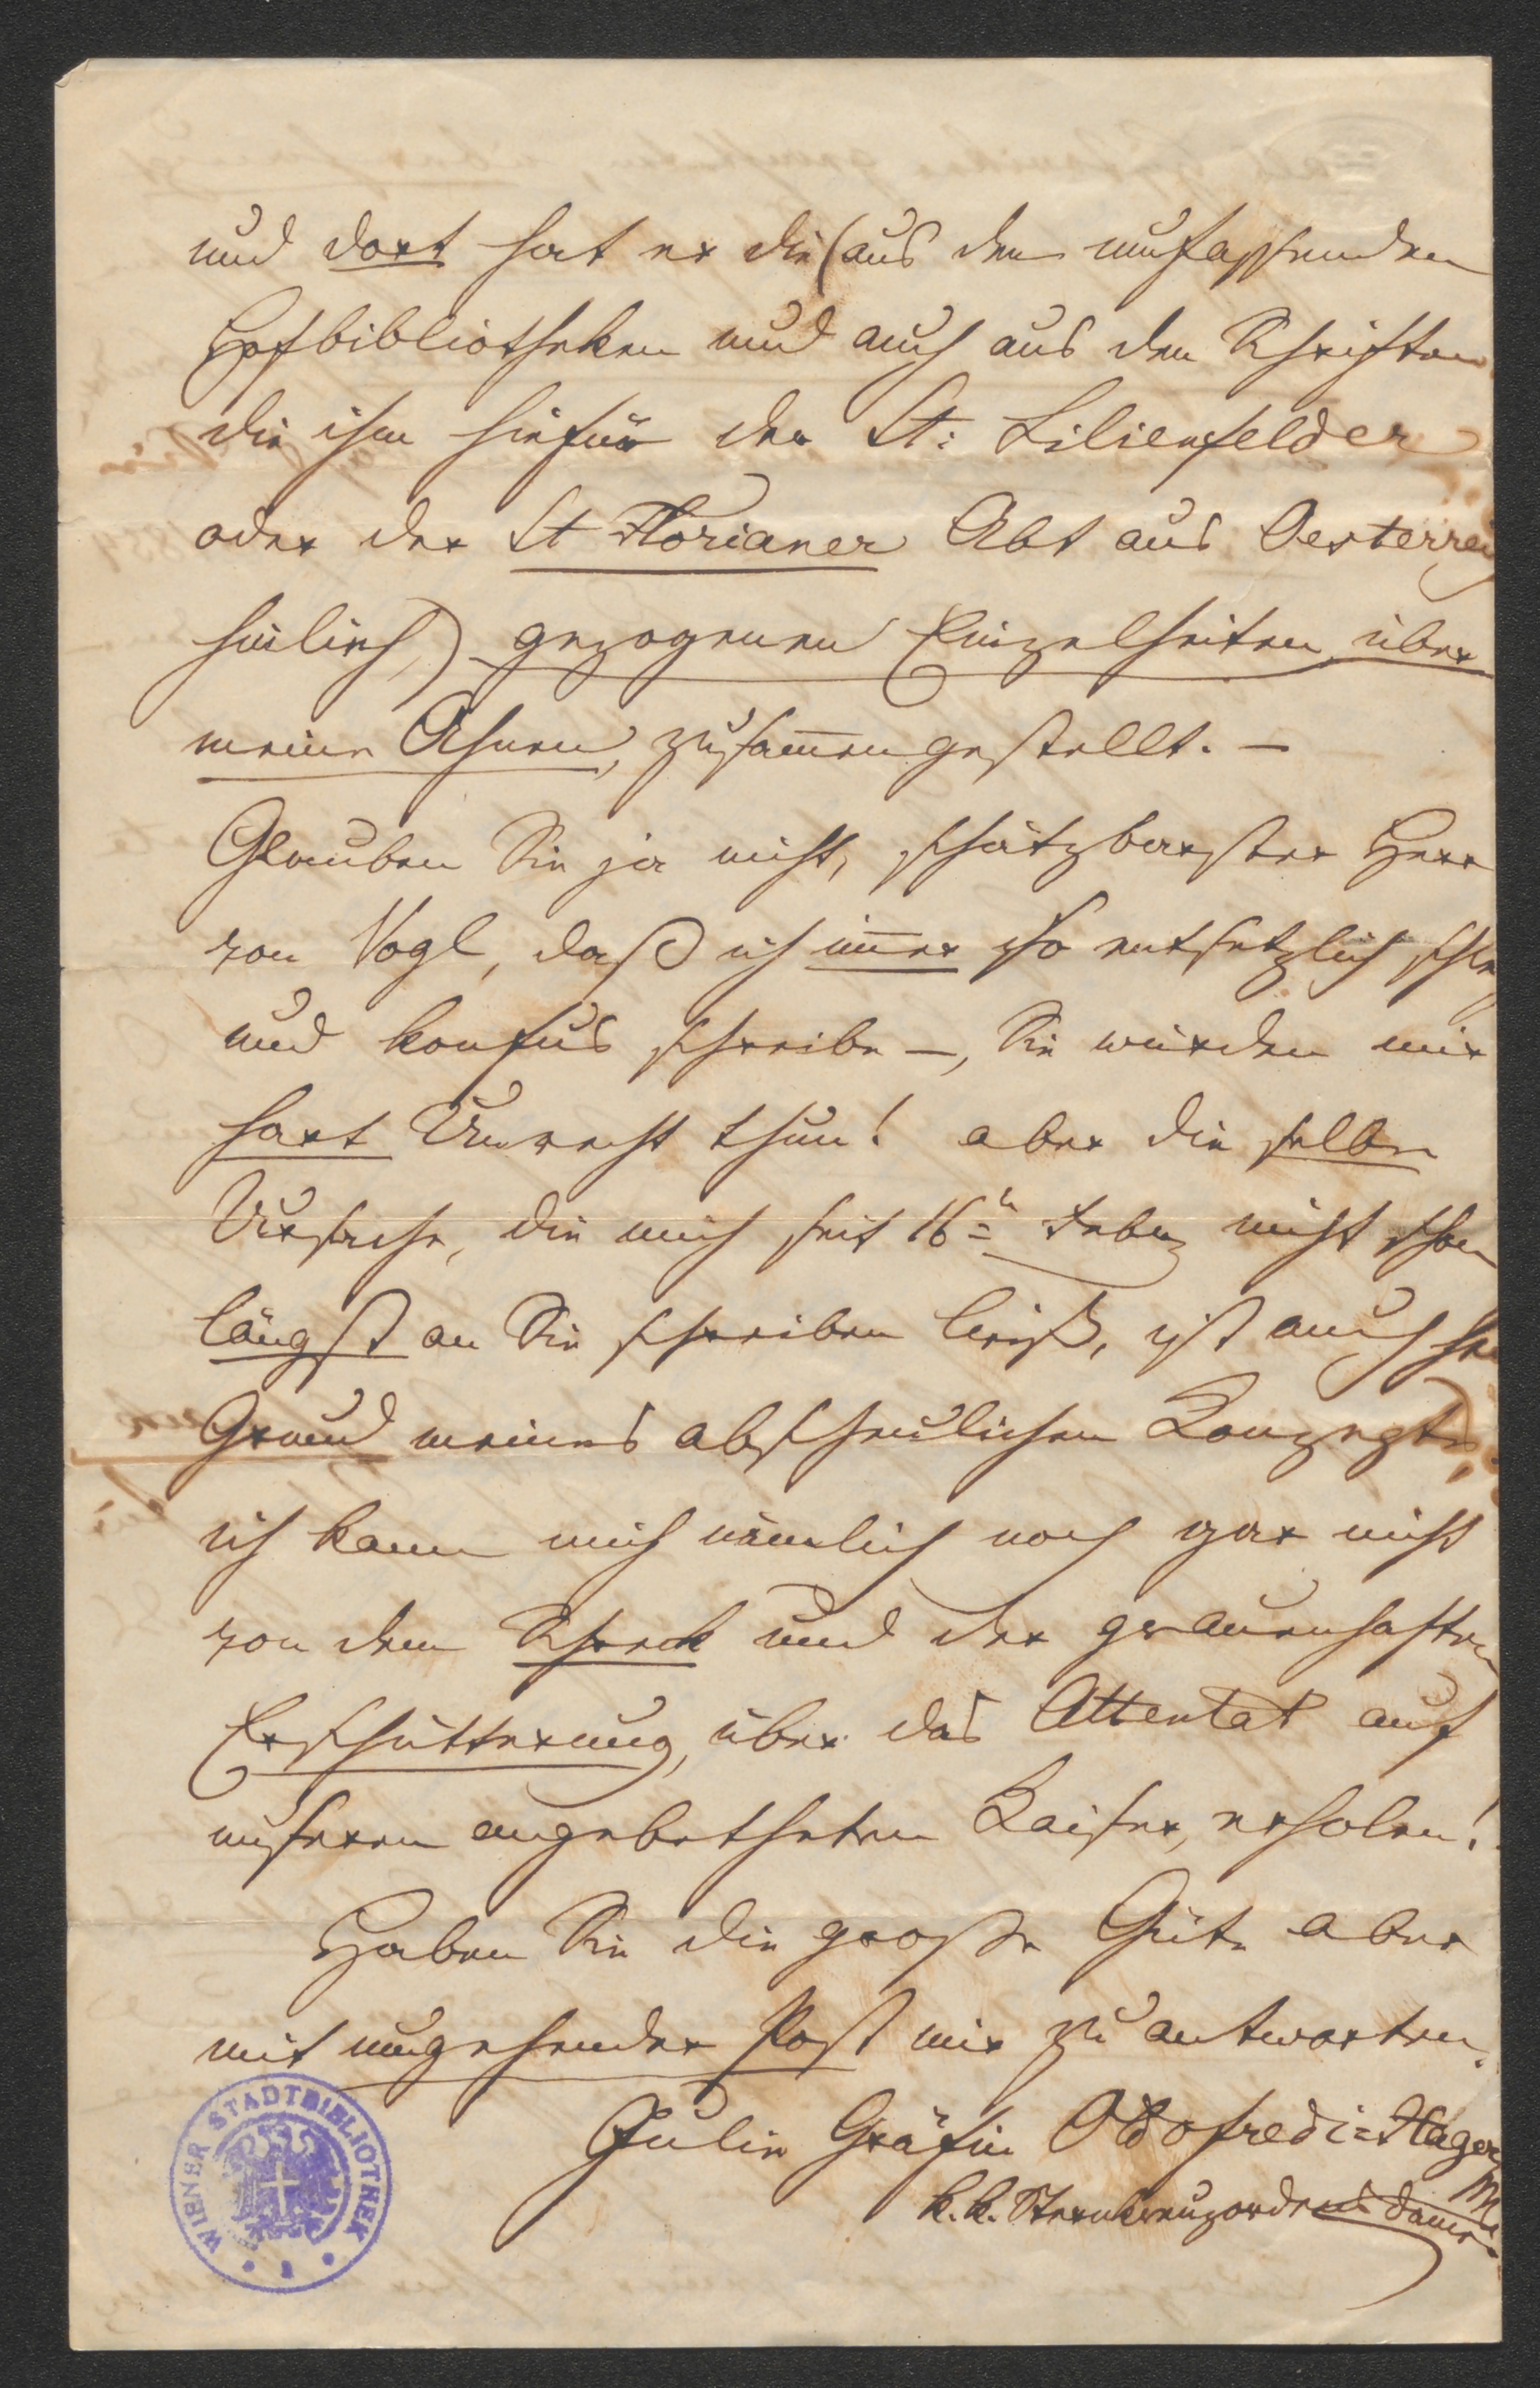 und dort hat er die (aus den umfassenden
Hofbibliotheken und auch aus den Schriften
die ihm hiefür der St: Lilienfelder
oder der St Florianer Abt aus Oesterrei
hinlieh,) gezogenen Einzelheiten über
meine Ahnen, zusam̅engestellt. —
Glauben Sie ja nicht, schätzbarster Herr
von Vogl, daß ich im̅er so entsetzlich schle
und konfus schreibe —, Sie würden mir
hart Unrecht thun! aber die selbe
Ursache, die mich seit 18n Feber nicht schon
längst an Sie schreiben ließ, ist auch
Grund meines abscheulichen Konzepts,
ich kann mich nämlich noch gar nicht
von dem Schreck und der grauenhaften
Erschütterung, über das Attentat auf
unseren angebetheten Kaiser, erholen!
Haben Sie die große Güte aber
mit umgehender Post mir zu antworten.
Julie Gräfin Odofredi=Hager
k.k. Sternkreuzordens dame
WIENER STADTBIBLIOTHEK